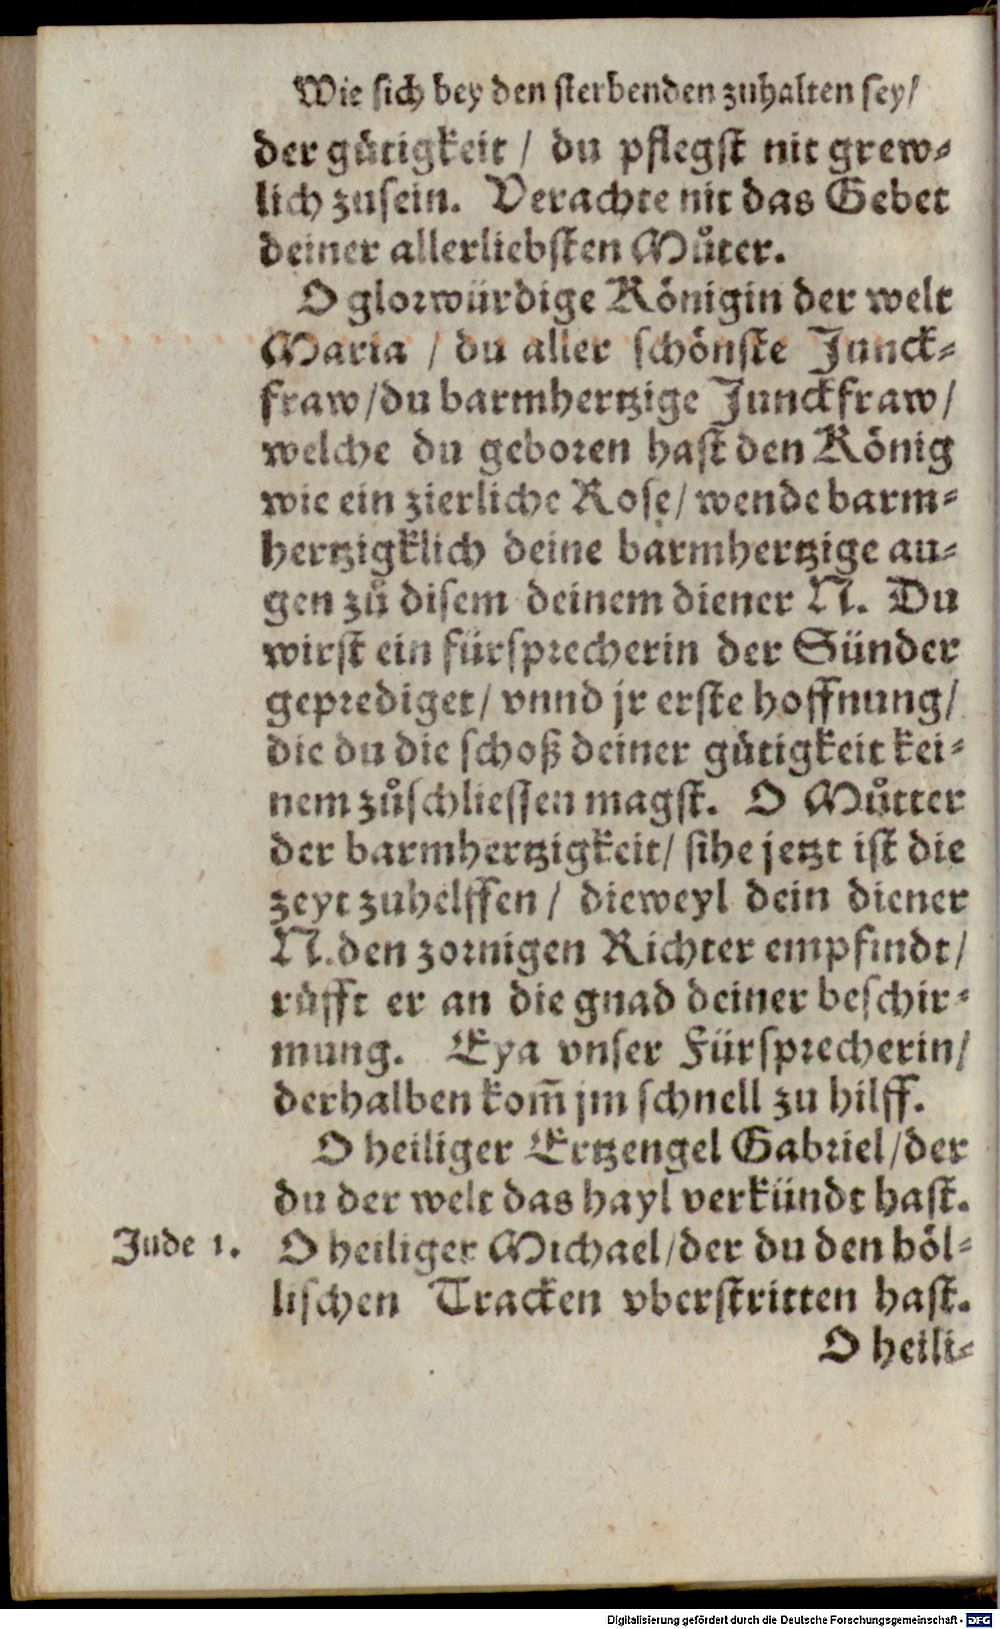 Wie sich bey den sterbenden zuhalten sey/
der gütigkeit / du pflegst nit grew⸗
lich zusein. Verachte nit das Gebet
deiner allerliebsten Můter.
O glorwürdige Königin der welt
Maria / du aller schönste Junck⸗
fraw/du barmhertzige Junckfraw/
welche du geboren hast den König
wie ein zierliche Rose/ wende barm⸗
hertzigklich deine barmhertzige au⸗
gen zů disem deinem diener N. Du
wirst ein fürsprecherin der Sünder
geprediget/ vnnd jr erste hoffnung/
die du die schoß deiner gütigkeit kei⸗
nem zůschliessen magst. O Můtter
der barmhertzigkeit/ sihe jetzt ist die
zeyt zuhelffen / dieweyl dein diener
N. den zornigen Richter empfindt/
rüfft er an die gnad deiner beschir⸗
mung. Eya vnser Fürsprecherin/
derhalben kom̃ jm schnell zu hilff.
O heiliger Ertzengel Gabriel/der
du der welt das hayl verkündt hast.
Jude 1. O heiliger Michael/der du den höl⸗
lischen Tracken vberstritten hast.
O heili⸗
Digitalisierung gefördert durch die Deutsche Forschungsgemeinschaft - DFG